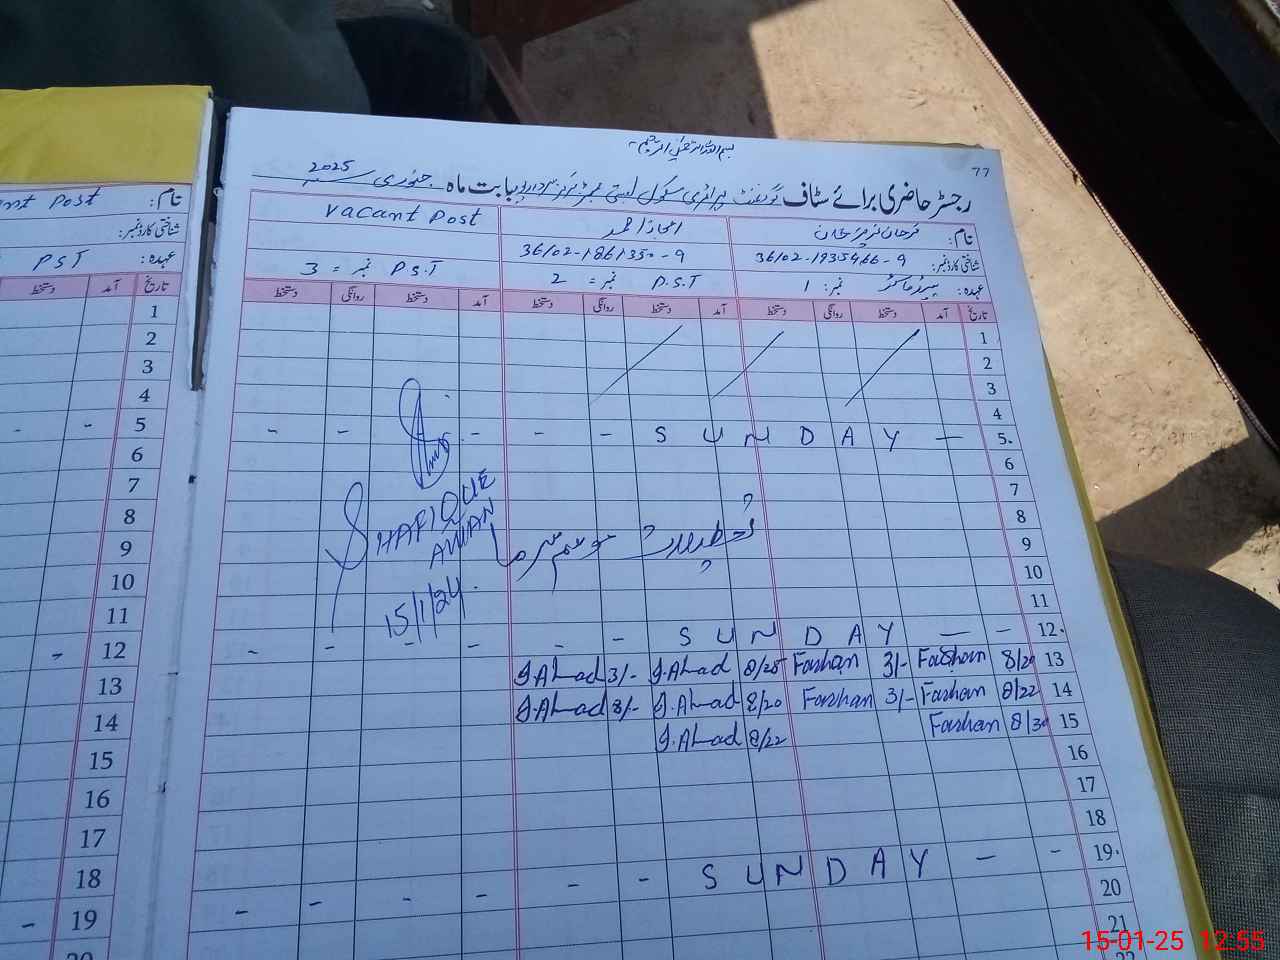 77
رجسٹر حاضری برائے سٹاف گورنمنٹ پرائمری سکول بستی بابت ماہ جنوری 2025
نام: اعجاز احمد Vacant Post
شناختی کارڈ نمبر: 36102-1935466-9 36102-1861350-9
عہدہ: نمبر: 1 P.S.T نمبر = 2 P.S.T نمبر = 3
تاریخ آمد دستخط روانگی دستخط آمد دستخط روانگی دستخط آمد دستخط روانگی دستخط
1
2
3
4
5. SUNDAY
6
7
8
تعطیلات موسم سرما
9
10
11
12. SUNDAY
13 8/20 Farhan 3/- Farhan 8/25 I.Ahad 3/- I.Ahad
14 8/22 Farhan 3/- Farhan 8/20 I.Ahad 3/- I.Ahad
15 8/30 Farhan 8/22 I.Ahad
16
17
18
19. SUNDAY
20
21
22
SHAFIQUE
AWAN
15/1/24
نام: Post
شناختی کارڈ نمبر:
عہدہ: PST
تاریخ آمد دستخط
1
2
3
4
5
6
7
8
9
10
11
12
13
14
15
16
17
18
19
20
15-01-25 12:55